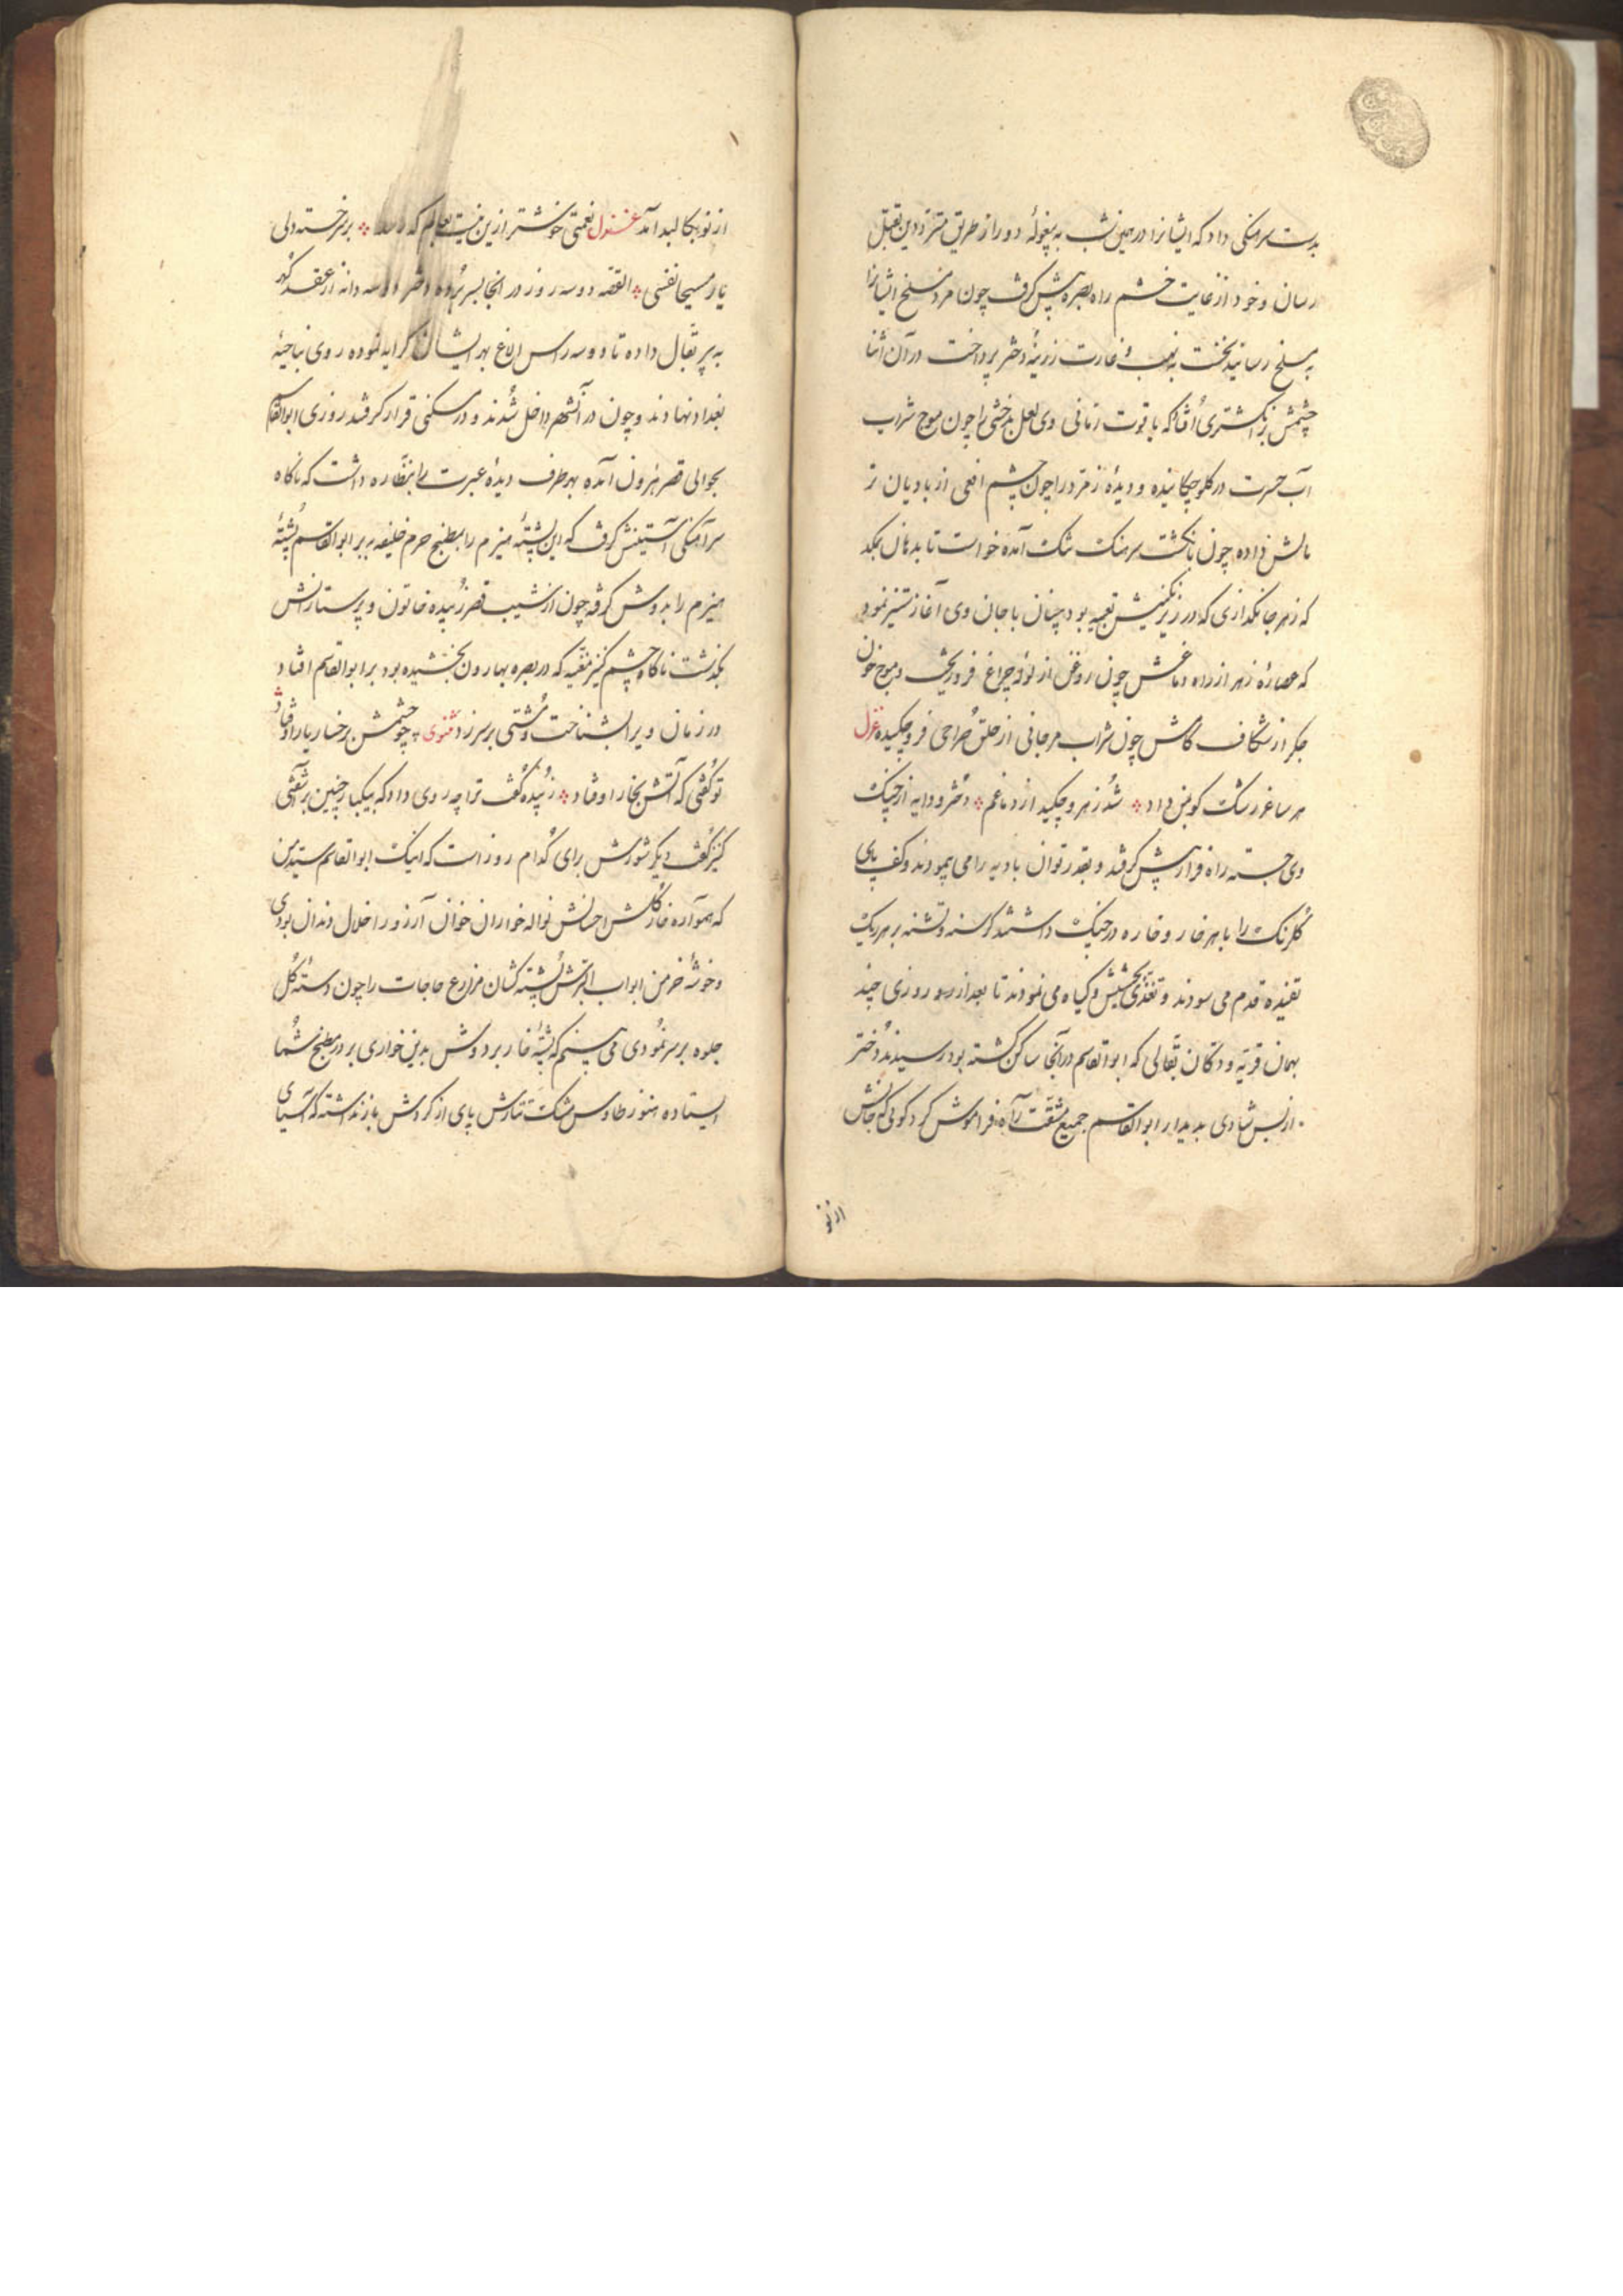 بدست سرهنگی داد که ایشانرا در همین شب به پیغولهٔ دور از طریق متردّدین بقتل
رسان و خود از غایت خشم راه بصره پیش گرفت چون مرد مسلخ ایشانرا
به مسلخ رسانید نخست به نهب و غارت زرینهٔ دختر پرداخت در آن اثنا
چشمش بر انگشتری افتاد که یاقوت رمانی وی لعل بدخشی را چون موج شراب
آب حسرت در گلو چکانیده و دیدهٔ زمرد را چون چشم افعی از بادیان تر
مالش داده چون بانگشت سرهنگ تنگ آمده خواست تا بدهان بمکد
که زهر جانگدازی که در زیر نگینش تعبیه بود چنان با جان وی آغاز ستیز نمود
که عصارهٔ زهر از راه دماغش چون روغن از لولهٔ چراغ فرو ریخت و موج خون
جگر از شکاف کامش چون شراب مرجانی از حلق صراحی فرو چکیده غزل
هر ساغر رشک کو بمن داد شد زهر و چکید از دماغم دختر و دایه از چنگ
وی جسته راه فرار پیش گرفتند و بقدر توان بادیه را می پیمودند و کف پای
گلرنگ را با هر خار و خاره در جنگ داشتند گرسنه و تشنه بر هر ریگ
تفتیده قدم می سودند و تغذی بحشیش و گیاه می نمودند تا بعد از دو روزی چند
بهمان قریه و دکان بقالی که ابوالقاسم در آنجا ساکن گشته بود رسیدند دختر
از بس شادی بدیدار ابوالقاسم جمیع مشقت راه فراموش کرد گوئی که جانش
از نو
از نو بکالبد آمد غزل نعمتی خوشتر ازین نیست بعالم که رسد بر سر خسته دلی
یار مسیحا نفسی القصه دو سه روز در آنجا بسر برده دختر دو سه دانه از عقد گهر
به پیر بقال داده تا دو سه راس الاغ بهر ایشان کرایه نموده روی بناحیهٔ
بغداد نهادند و چون در آنشهر داخل شدند و در مسکنی قرار گرفتند روزی ابوالقاسم
بحوالی قصر هرون آمده بهر طرف دیدهٔ عبرت را بنظاره داشت که ناگاه
سرآهنگی آستینش گرفت که این پشتهٔ هیزم را بمطبخ حرم خلیفه ببر ابوالقاسم پشتهٔ
هیزم را بدوش گرفته چون از نشیب قصر زبیده خاتون و پرستارانش
بگذشت ناگاه چشم کنیز مغنیه که در بصره بهارون بخشیده بود بر ابوالقاسم افتاد
در زمان ویرا بشناخت و مشتی بر سر زد مثنوی چو چشمش بر رخسار یار اوفتاد
تو گفتی که آتش بخار اوفتاد زبیده گفت ترا چه روی داد که بیکبار چنین بر آشفتی
کنیز گفت دیگر شورش برای کدام روز است که اینک ابوالقاسم سید من
که همواره خار گلشن احسانش نواله خواران خوان آرزو را خلال دندان بودی
و خوشهٔ خرمن ابواب البرش پشته کشان مزارع حاجات را چون دستهٔ گل
جلوه بر سر نمودی می بینم که پشتهٔ خار بر دوش بدین خواری بر در مطبخ شما
ایستاده هنوز طاوس پای از گردش باز نداشته که آسیای